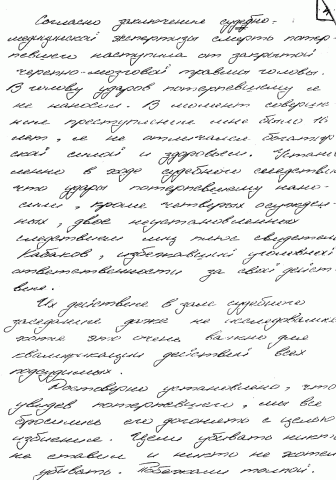 Согласно заключению судебно-
медицинской экспертизы смерть потер-
певшего наступила от закрытой
черепно-мозговой травмы головы.
В голову ударов потерпевшему я
не наносил. В момент соверше-
ния преступления мне было 16
лет, я не отличался богатыр-
ской силой и здоровьем. Устано-
влено в ходе судебного следствия
что удары потерпевшему нано-
сили, кроме четверых осужден-
ных, двое неустановленных
следствием лиц плюс свидетель
Кабаков, избежавший уголовной
ответственности за свои дейст-
вия.
Их действия в зале судебного
заседания даже не исследовались
хотя это очень важно для
квалификации действий всех
подсудимых.
Достоверно установлено, что
увидев потерпевшего, мы все
бросились его догонять с целью
избиения. Цели убивать никто
не ставил и никто не хотел
убивать. Побежали толпой.